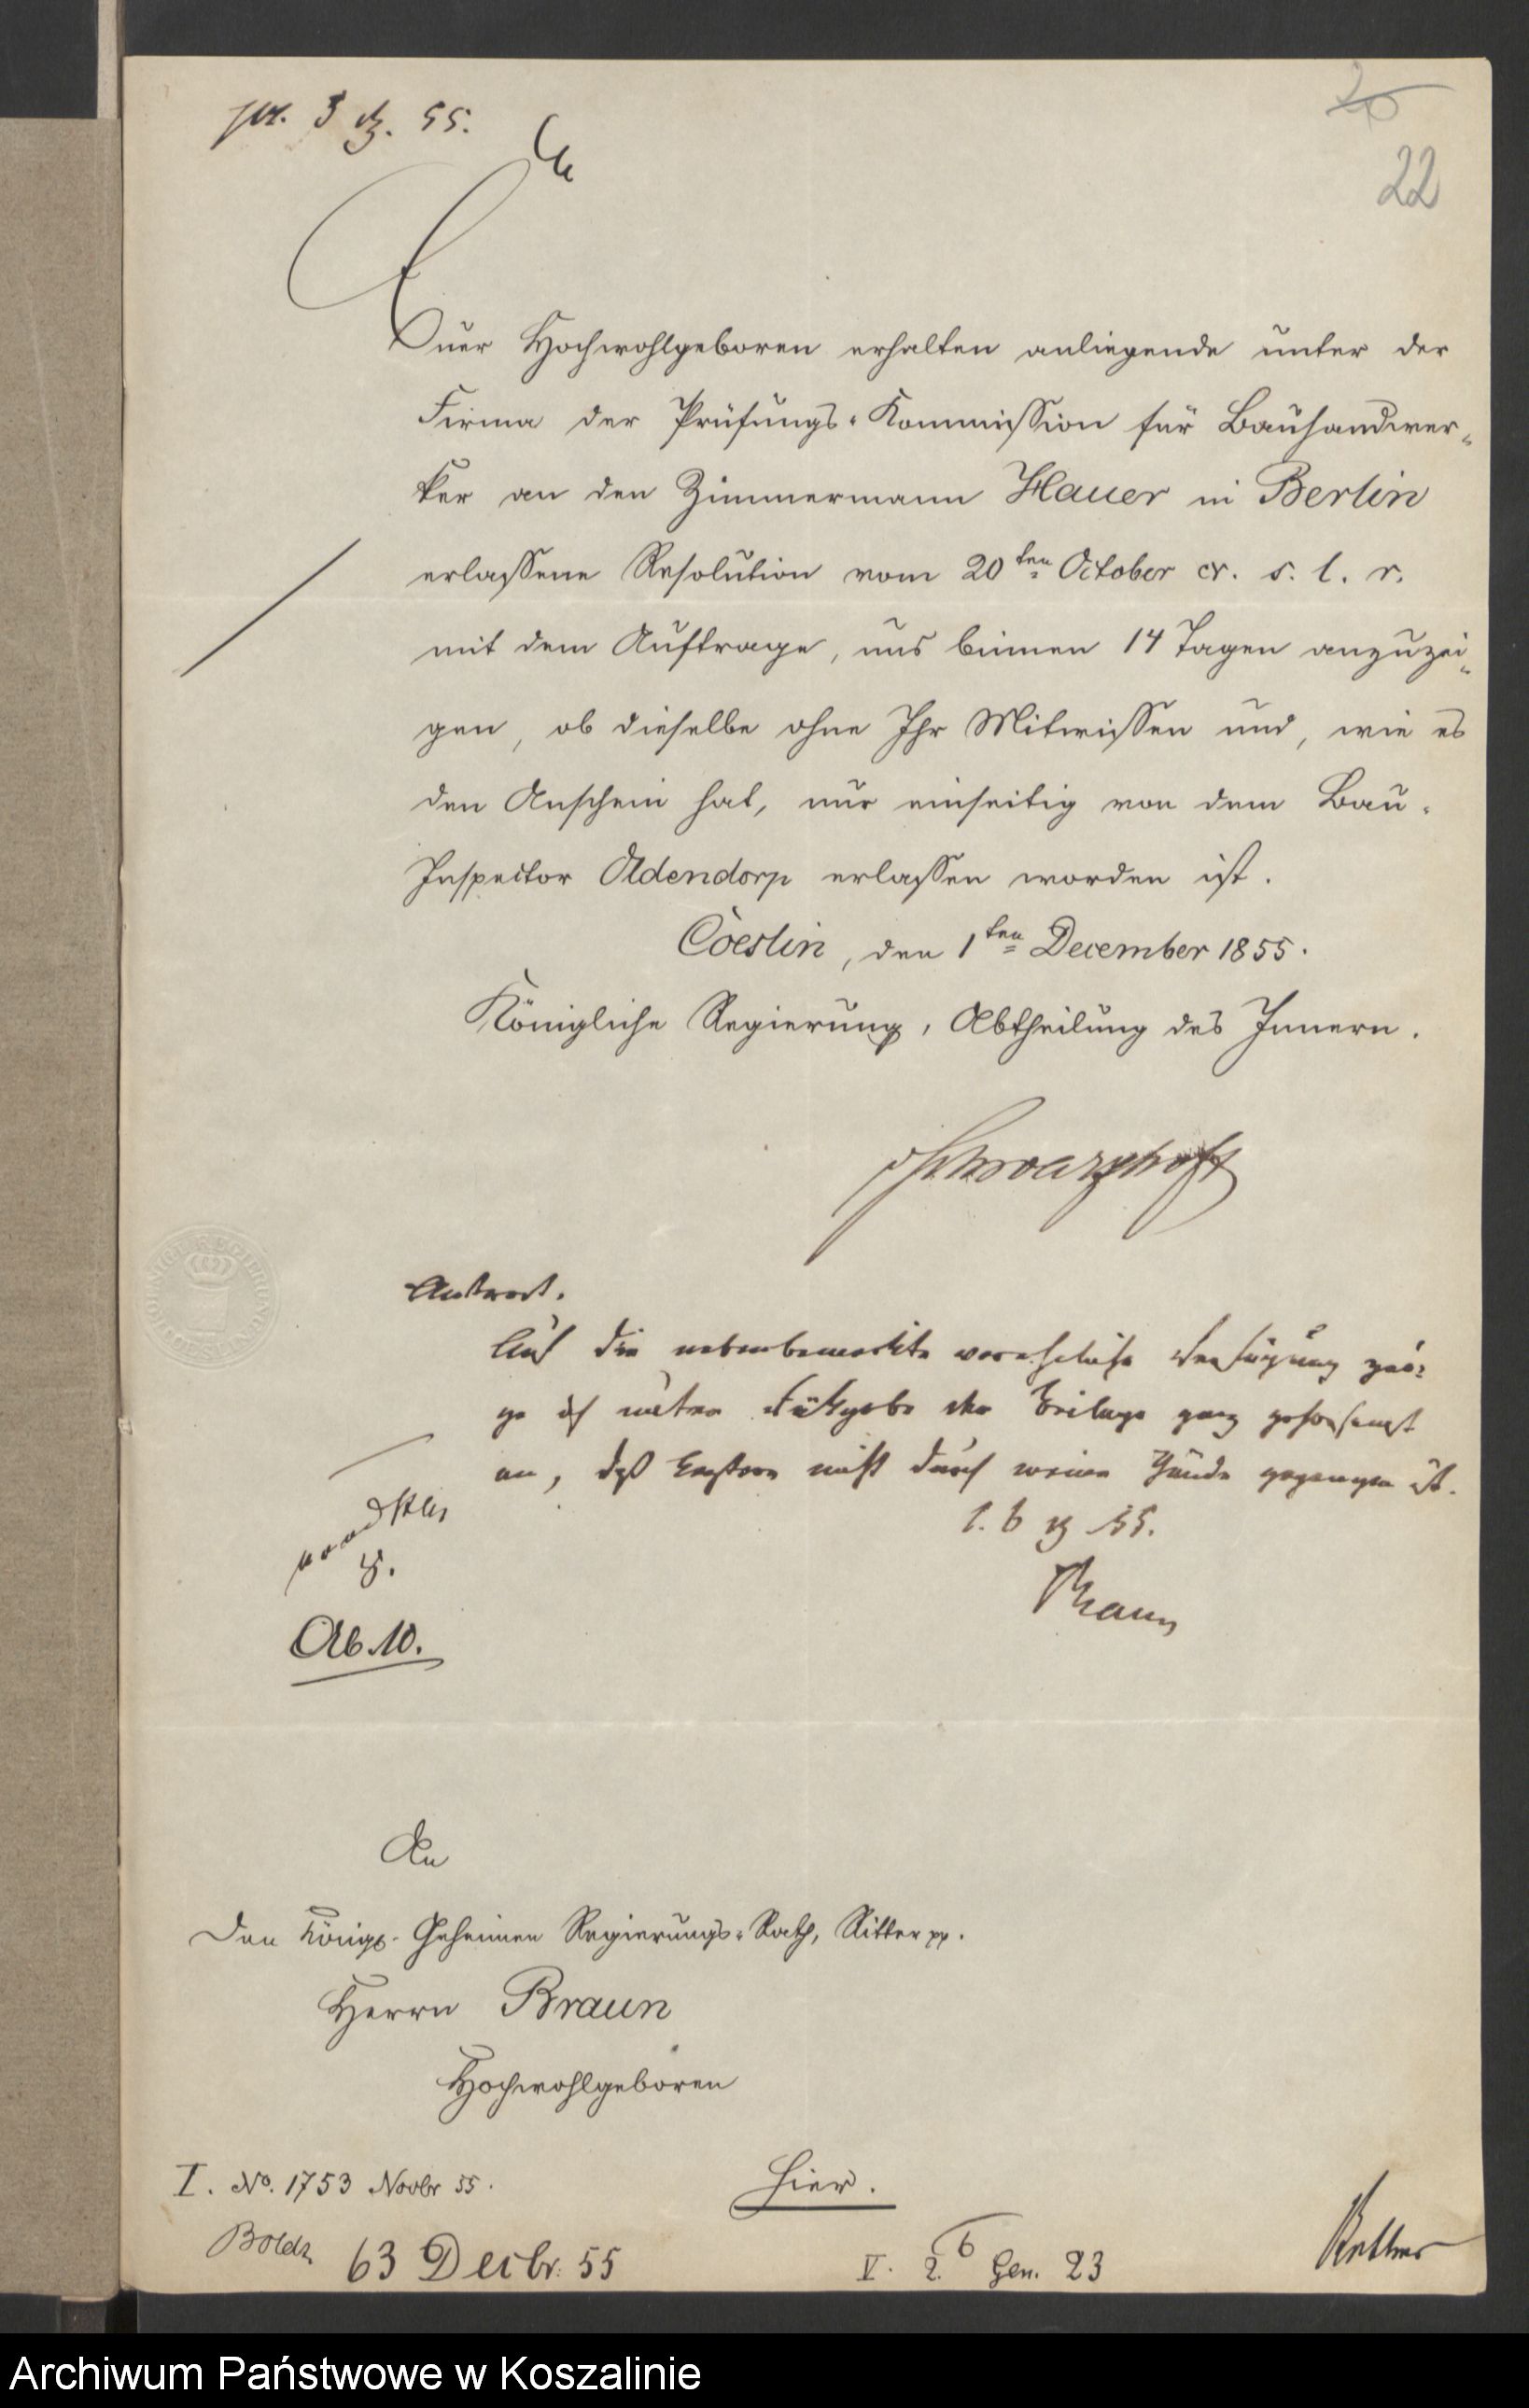 pr. 3 55.
20
22
Euer Hochwohlgeboren erhalten anliegende unter der
Firma der Prüfungs-Kommission für Bauhandwer-
ker an den Zimmermann Hauer in Berlin
erlassene Resolution vom 20ten October cr. s. l. r.
mit dem Auftrage, uns binnen 14 Tagen anzuzei-
gen, ob dieselbe ohne Ihr Mitwissen und, wie es
den Anschein hat, nur einseitig von dem Bau-
Inspector Oldendorp erlassen worden ist.
Coeslin, den 1ten December 1855.
Königliche Regierung, Abtheilung des Innern.
Antwort.
Auf die nebenbemerkte Verfügung zei-
ge ich unter Rückgabe der Beilage ganz gehorsamst
an, daß nicht durch meine Hände gegangen ist.
55.
Braun
Ab. 10.
An
Den Königl. Geheimen Regierungs-Rath, Ritter pp.
Herrn Braun
Hochwohlgeboren
I. No. 1753 Novbr 55.
Hier.
63 Decbr. 55
V. 2. 6 Gen. 23
Archiwum Państwowe w Koszalinie